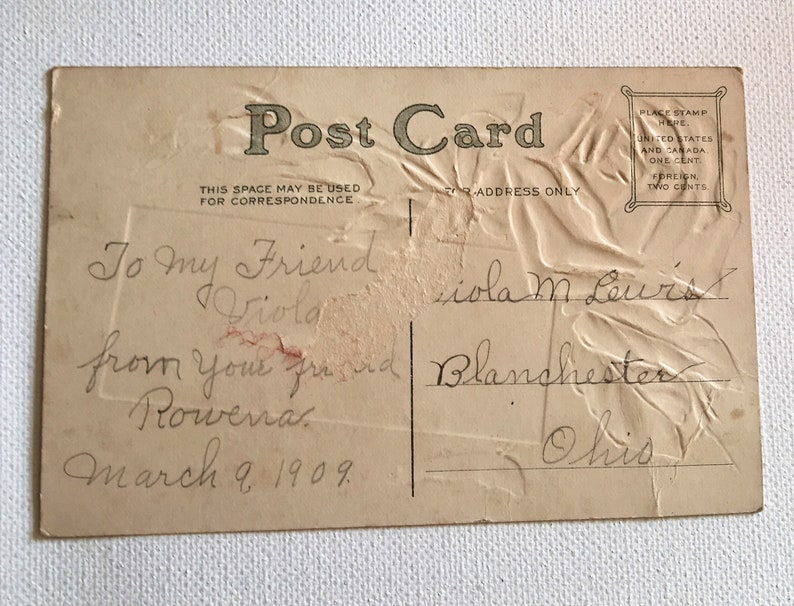 Post Card
THIS SPACE MAY BE USED
FOR CORRESPONDENCE.
FOR ADDRESS ONLY
PLACE STAMP
HERE.
UNITED STATES
AND CANADA,
ONE CENT.
FOREIGN,
TWO CENTS.
To My Friend
Viola
from your friend
Rowena.
March 9, 1909.
iola M Lewis
Blanchester
Ohio